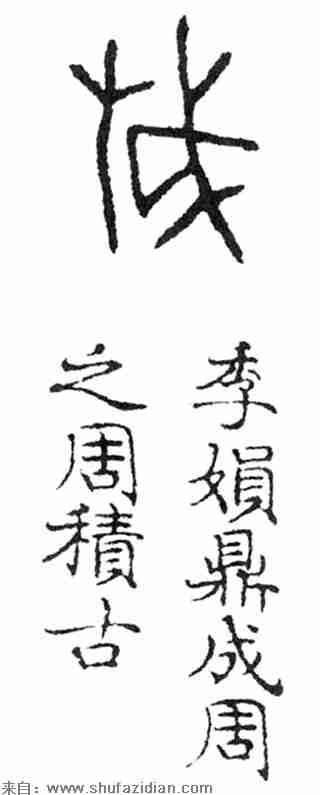 成
季娟鼎成周
之周積古
来自：www.shufazidian.com